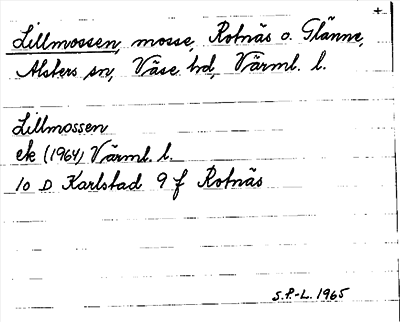 +
Lillmossen, mosse, Rotnäs o. Glänne,
Alsters sn, Väse hd, Värml. l.
Lillmossen
ek (1964) Värml. l.
10 D Karlstad 9 f Rotnäs
S.P.-L. 1965